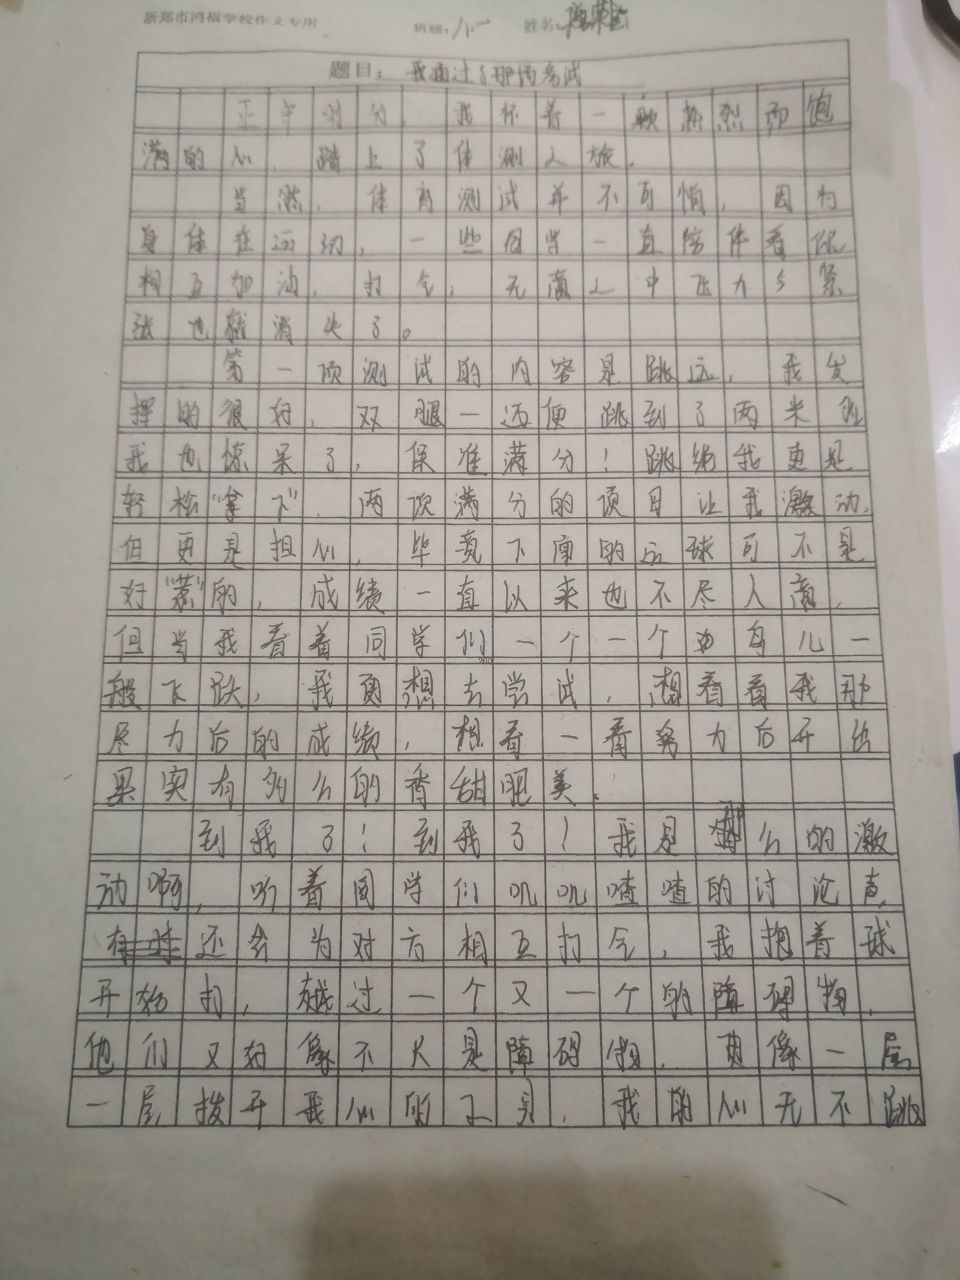 新郑市鸿福学校作文专用 班级: 姓名:
题目：我通过了那场考试
正午时分，我怀着一颗热烈而饱
满的心，踏上了体测之旅。
当然，体育测试并不可怕，因为
身体在运动，一些同学一直陪伴着你
相互加油，打气，无意之中压力与紧
张也就消失了。
第一项测试的内容是跳远，我发
挥的很好，双腿一迈便跳到了两米
我也惊呆了，保准满分！跳绳我更是
轻松“拿下”，两项满分的项目让我激动，
但更是担心，毕竟下面的运球可不是
好“惹”的，成绩一直以来也不尽人意，
但当我看着同学们一个一个如鸟儿一
般飞跃，我更想去尝试，想看看我那
尽力后的成绩，想看一看努力后开出
果实有多么的香甜肥美。
到我了！到我了！我是么的激
动啊，听着同学们叽叽喳喳的讨论声，
有时还会为对方相互打气，我抱着球
开始打，越过一个又一个的障碍物，
他们又好像不只是障碍物，更像一层
一层拨开我心的工具，我的心无不跳